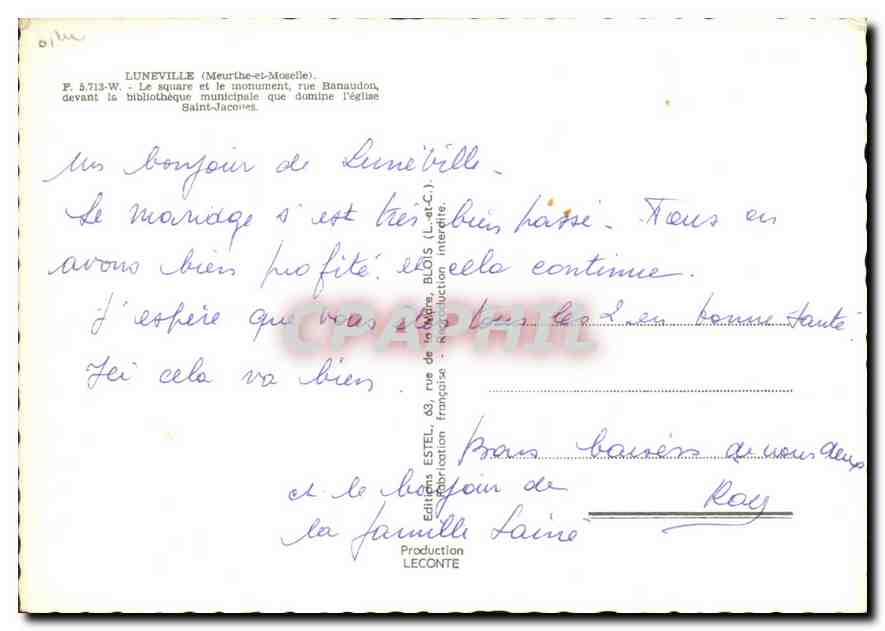 LUNEVILLE (Meurthe-et-Moselle).
P. 5.713-W. - Le square et le monument, rue Banaudon,
devant la bibliothèque municipale que domine l'église
Saint-Jacques.
Un bonjour de Lunéville.
Le mariage s'est très bien passé. Nous en
avons bien profité et cela continue.
J'espère que vous êtes tous les 2 en bonne santé.
Ici cela va bien.
Bons baisers de nous deux
et le bonjour de
la famille Lainé
Roy
Editions ESTEL, 63, rue de la Mare, BLOIS (L.-et-C.).
Fabrication française - Reproduction interdite.
Production
LECONTE
CPAPHIL